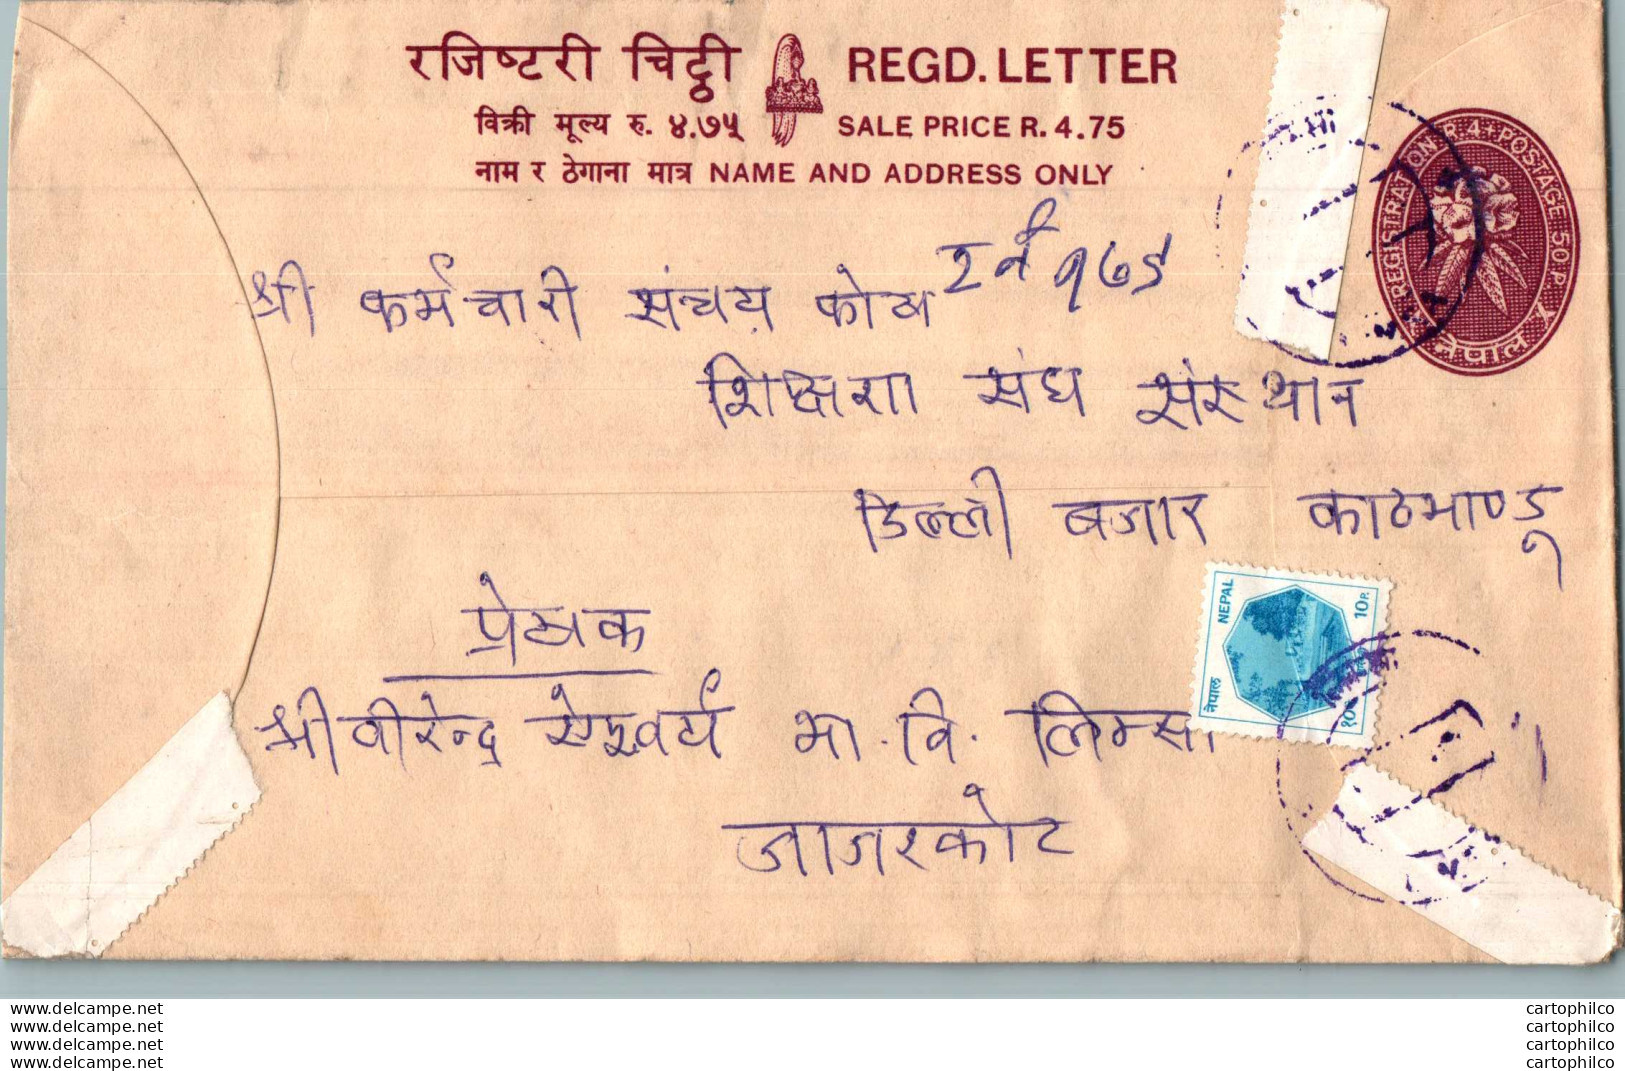 रजिष्टरी चिट्ठी REGD. LETTER
विक्री मूल्य रु. ४.७५ SALE PRICE R. 4.75
नाम र ठेगाना मात्र NAME AND ADDRESS ONLY
REGISTRATION R.4 POSTAGE 50P.
नेपाल
र नं १७५
श्री कर्मचारी संचय कोष
शिक्षण संघ संस्थान
डिल्ली बजार काठमाण्डू
NEPAL 10P.
नेपाल १०
प्रेषक
श्री वीरेन्द्र ऐश्वर्य मा. वि. लिम्सा
जाजरकोट
delcampe.net cartophilco
delcampe.net cartophilco
delcampe.net cartophilco
delcampe.net cartophilco